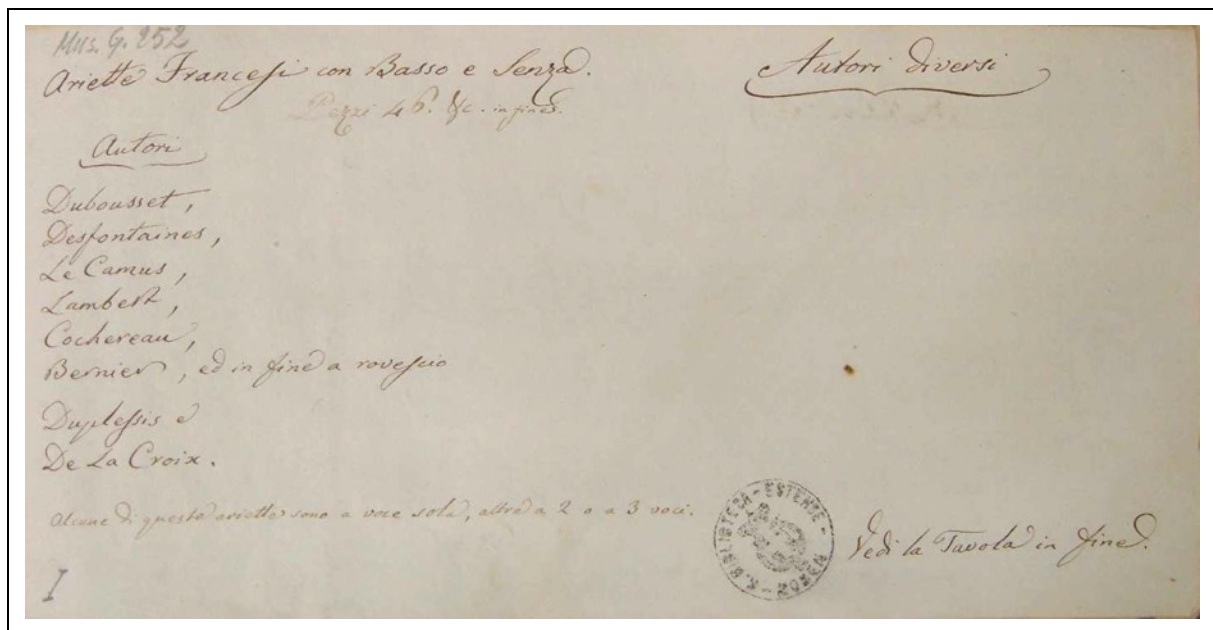 Mus. G. 252
Ariette Francesi con Basso e Senza.
Autori diversi
Pezzi 46. &c. in fine.
Autori
Dubousset,
Desfontaines,
Le Camus,
Lambert,
Cochereau,
Bernier, ed in fine a rovescio
Duplessis e
De La Croix.
Alcune di queste ariette sono a voce sola, altre a 2 o a 3 voci.
R. BIBLIOTECA - ESTENSE - MODENA
Vedi la Tavola in fine.
I